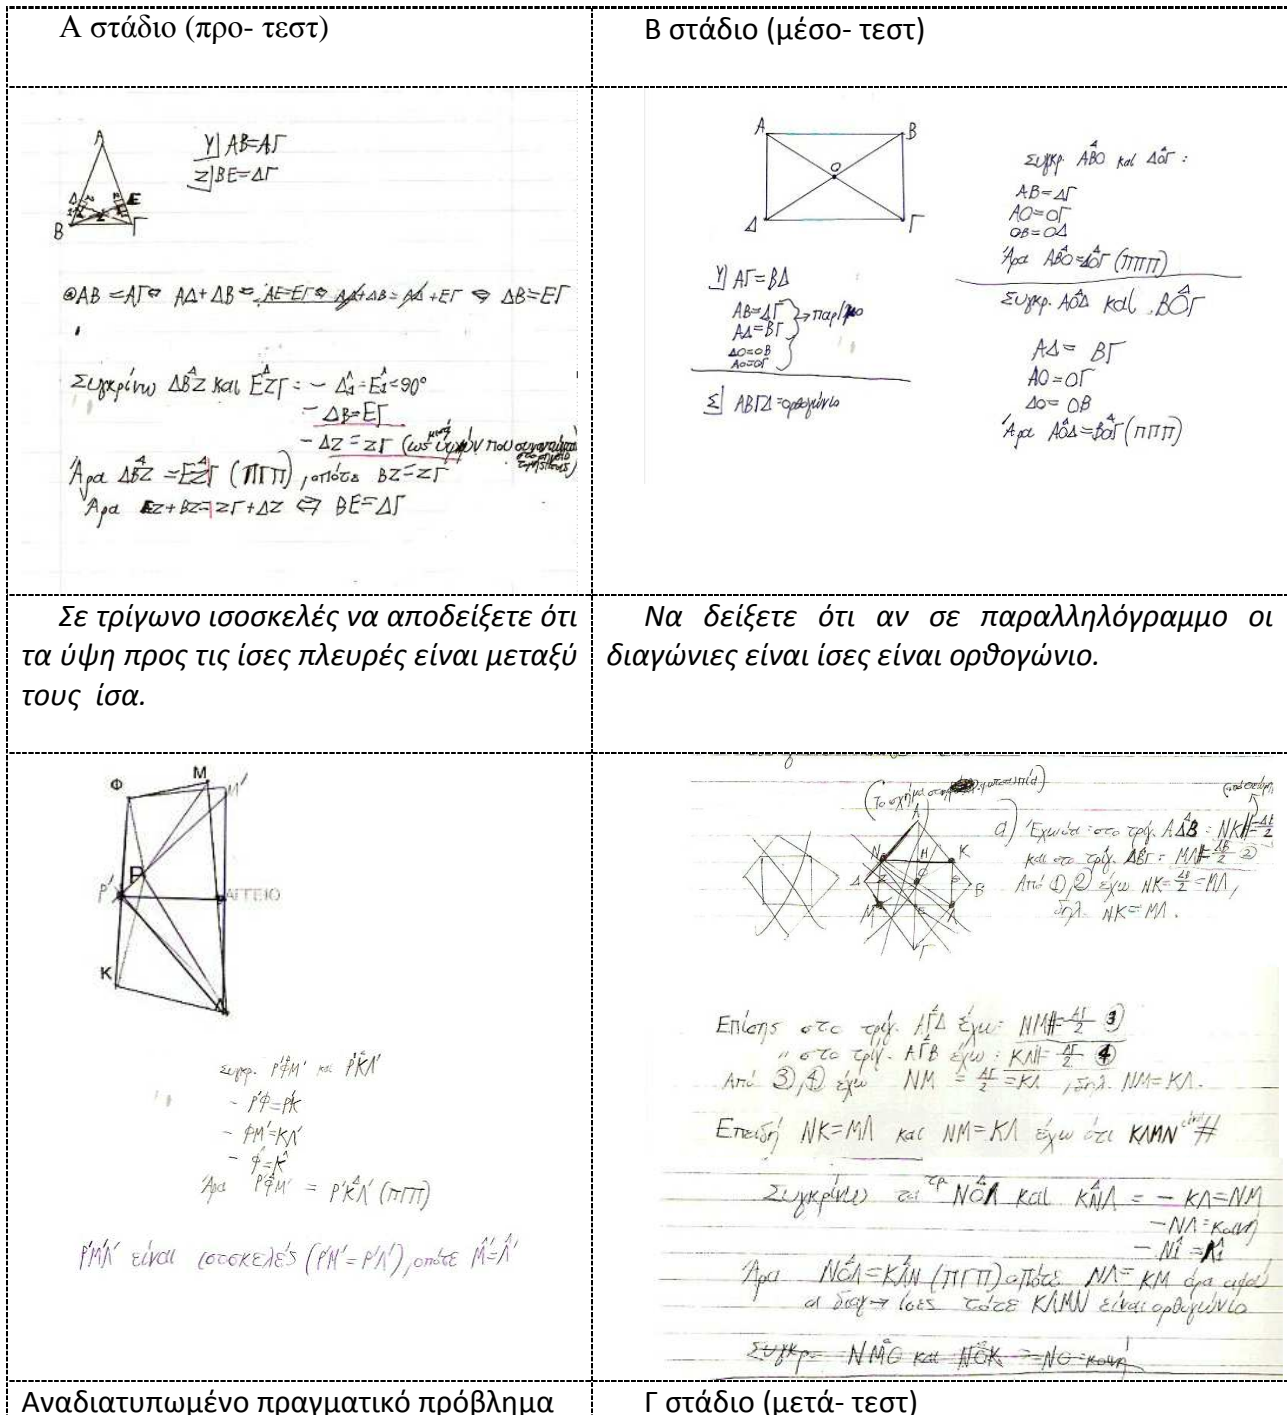 Α στάδιο (προ- τεστ)
Β στάδιο (μέσο- τεστ)
Α
Δ
Ε
Β
Γ
Υ| ΑΒ=ΑΓ
Ζ| ΒΕ=ΔΓ
ΑΒ=ΑΓ⇔ ΑΔ+ΔΒ= ΑΕ=ΕΓ⇔ ΑΔ+ΔΒ=ΑΔ+ΕΓ ⇔ ΔΒ=ΕΓ
Συγκρίνω ΔΒΖ και ΕΖΓ: - Δ1=Ε1=90°
- ΔΒ=ΕΓ
- ΔΖ=ΖΓ (ως μισά υψών που
Άρα ΔΒΖ=ΕΖΓ (ΠΓΠ), οπότε ΒΖ=ΖΓ
Άρα ΕΖ+ΒΖ=ΖΓ+ΔΖ ⇔ ΒΕ=ΔΓ
Α
Β
Ο
Δ
Γ
Υ| ΑΓ=ΒΔ
ΑΒ=ΔΓ
ΑΔ=ΒΓ
ΔΟ=ΟΒ
ΑΟ=ΟΓ
Σ| ΑΒΓΔ=ορθογώνιο
Συγκρ. ΑΒΟ και ΔΟΓ:
ΑΒ=ΔΓ
ΑΟ=ΟΓ
ΟΒ=ΟΔ
Άρα ΑΒΟ=ΔΟΓ (πππ)
Συγκρ. ΑΟΔ και ΒΟΓ
ΑΔ= ΒΓ
ΑΟ=ΟΓ
ΔΟ= ΟΒ
Άρα ΑΟΔ=ΒΟΓ (πππ)
Σε τρίγωνο ισοσκελές να αποδείξετε ότι
τα ύψη προς τις ίσες πλευρές είναι μεταξύ
τους ίσα.
Να δείξετε ότι αν σε παραλληλόγραμμο οι
διαγώνιες είναι ίσες είναι ορθογώνιο.
Φ
Μ
Μ'
Ρ
Ρ'
ΑΓΓΕΙΟ
Κ
Λ
συγκρ. Ρ'ΦΜ' και Ρ'ΚΛ'
- Ρ'Φ=Ρ'Κ
- ΦΜ'=ΚΛ'
- Φ=Κ
Άρα Ρ'ΦΜ' = Ρ'ΚΛ' (πγπ)
Ρ'Μ'Λ' είναι ισοσκελές (Ρ'Μ'=Ρ'Λ'), οπότε Μ'=Λ'
(Το σχήμα στην
Α
Ν
Η
Κ
Δ
Ζ
Β
Μ
Ε
Λ
Γ
α) στο τρίγ. ΑΔΒ: ΝΚ//=ΔΒ/2
και στο τρίγ. ΔΒΓ: ΜΛ//=ΔΒ/2 ②
Από ①,② έχω ΝΚ=ΔΒ/2=ΜΛ,
δηλ. ΝΚ=ΜΛ.
Επίσης στο τρίγ. ΑΓΔ έχω: ΝΜ//=ΑΓ/2 ③
" στο τρίγ. ΑΓΒ έχω: ΚΛ//=ΑΓ/2 ④
Από ③,④ έχω ΝΜ=ΑΓ/2=ΚΛ, δηλ. ΝΜ=ΚΛ.
Επειδή ΝΚ=ΜΛ και ΝΜ=ΚΛ έχω ότι ΚΛΜΝ είναι #
Συγκρίνω τα τρ ΝΟΛ και ΚΝΛ = - ΚΛ=ΝΜ
- ΝΛ=κοινή
- Ν1=Λ1
Άρα ΝΟΛ=ΚΛΝ (ΠΓΠ) οπότε ΝΛ=ΚΜ άρα αφού
οι διαγ→ ίσες τότε ΚΛΜΝ είναι ορθογώνιο
Συγκρ. ΝΜΟ και ΝΟΚ =ΝΟ=κοινή
Αναδιατυπωμένο πραγματικό πρόβλημα
Γ στάδιο (μετά- τεστ)